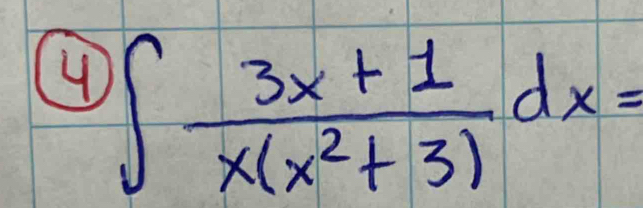 4 ∫ (3x + 1)/(x(x² + 3)) dx =